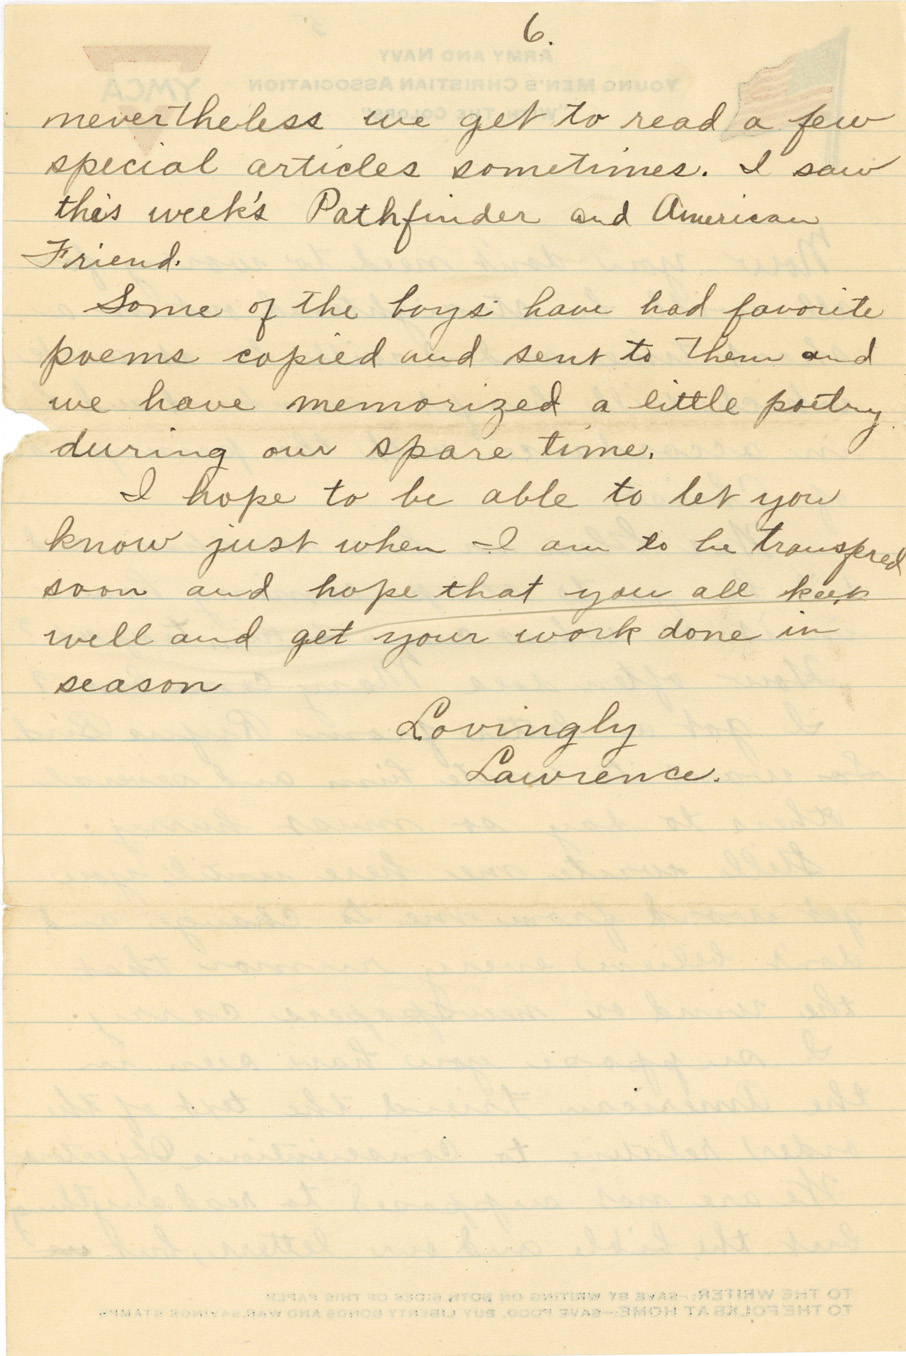 6.
nevertheless we get to read a few
special articles sometimes. I saw
this week's Pathfinder and American
Friend.
Some of the boys have had favorite
poems copied and sent to them and
we have memorized a little poetry
during our spare time.
I hope to be able to let you
know just when I am to be transfred
soon and hope that you all keep
well and get your work done in
season
Lovingly
Lawrence.